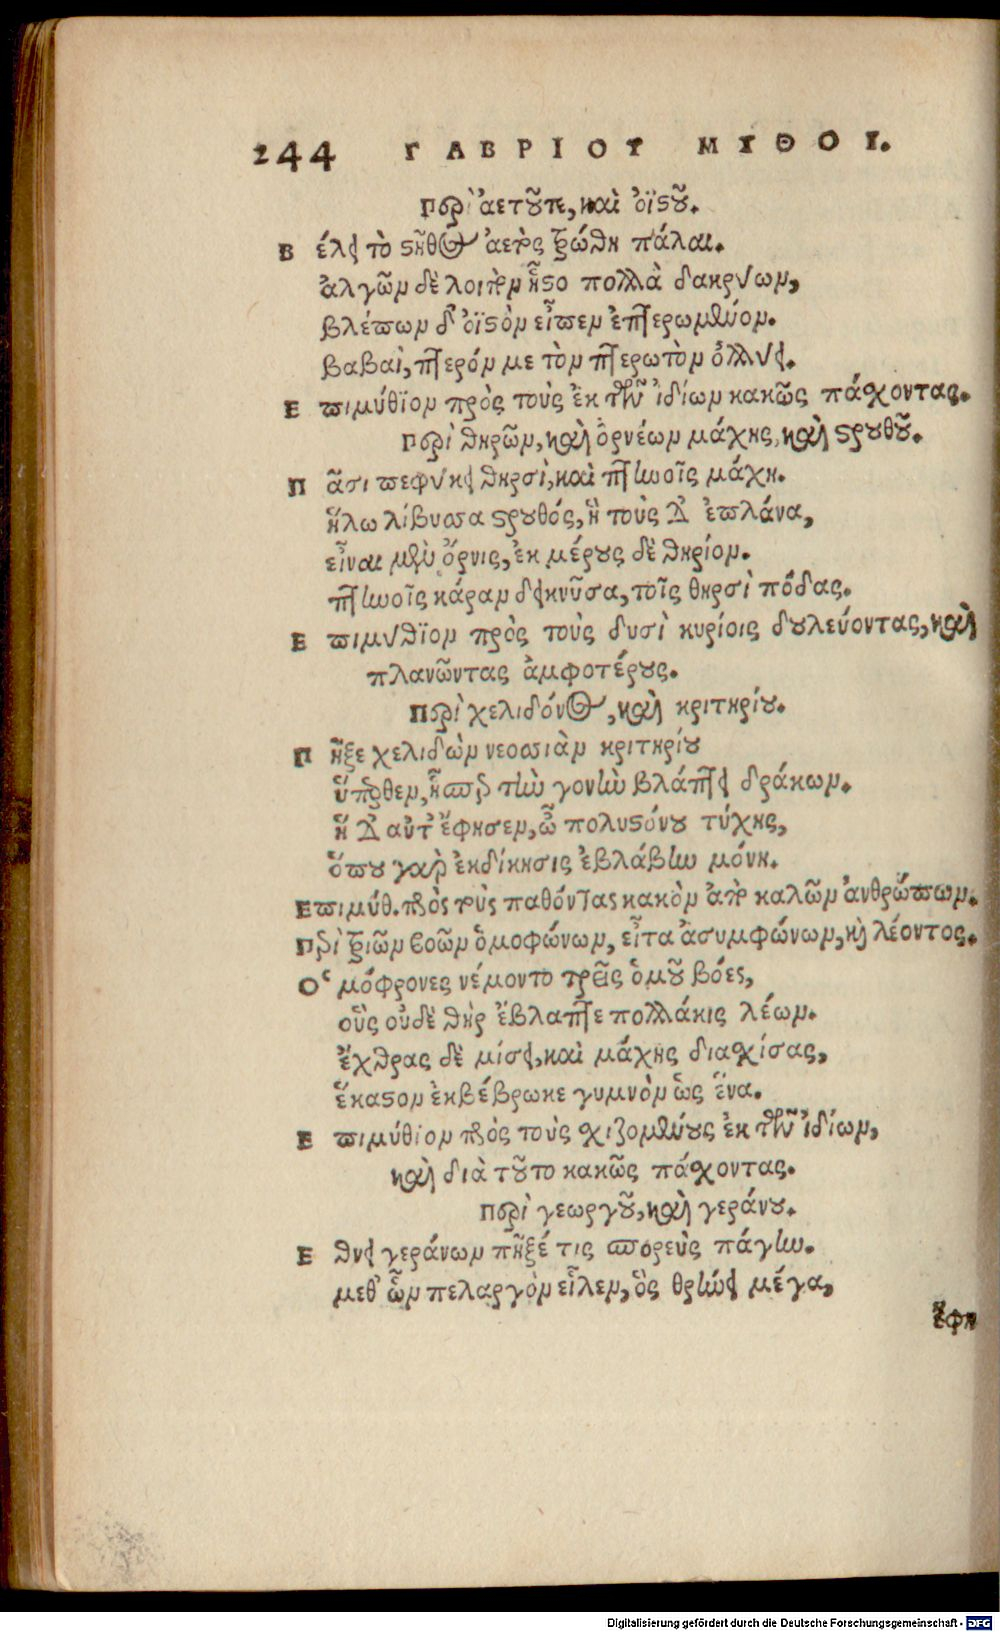 244 ΓΑΒΡΙΟΥ ΜΥΘΟΙ.
Περὶ ἀετοῦτε, καὶ ὀϊστοῦ.
Β έλει τὸ στῆθος ἀετὸς ἐτρώθη πάλαι.
ἀλγῶν δὲ λοιπὸν ἧστο πολλὰ δακρύων,
βλέπων δ' ὀϊστὸν εἶπεν ἐπτερωμένον.
βαβαὶ, πτερόν με τὸν πτερωτὸν ὀλλύει.
Ε πιμύθϊον πρὸς τοὺς ἐκ τῶν ἰδίων κακῶς πάσχοντας.
Περὶ θηρῶν, καὶ ὀρνέων μάχης, καὶ στρουθοῦ.
Π ᾶσι πεφύκει θηρσὶ, καὶ πτηνοῖς μάχη.
ἥλω λίβυσσα στρουθός, ἣ τοὺς δ' ἐπλάνα,
εἶναι μὲν ὄρνις, ἐκ μέρους δὲ θηρίον.
πτηνοῖς κάραν δεικνῦσα, τοῖς θηρσὶ πόδας.
Ε πιμύθϊον πρὸς τοὺς δυσὶ κυρίοις δουλεύοντας, καὶ
πλανῶντας ἀμφοτέρους.
Περὶ χελιδόνος, καὶ κριτηρίου.
Π ῆξε χελιδὼν νεοσσιὰν κριτηρίου
ὕπερθεν, ἧσπερ τὴν γονὴν βλάπτει δράκων.
ἣ δ' αὖτ' ἔφησεν, ὦ πολυστόνου τύχης,
ὅπου γὰρ ἐκδίκησις ἐβλάβην μόνη.
Επιμύθ. πρὸς τοὺς παθόντας κακὸν ἀπὸ καλῶν ἀνθρώπων.
Περὶ τριῶν βοῶν ὁμοφώνων, εἶτα ἀσυμφώνων, καὶ λέοντος.
Οʽ μόφρονες νέμοντο τρεῖς ὁμοῦ βόες,
οὓς οὐδὲ θὴρ ἔβλαπτε πολλάκις λέων.
ἔχθρας δὲ μίσει, καὶ μάχης διασχίσας,
ἕκαστον ἐκβέβρωκε γυμνὸν ὡς ἕνα.
Ε πιμύθιον πρὸς τοὺς σχιζομένους ἐκ τῶν ἰδίων,
καὶ διὰ τοῦτο κακῶς πάσχοντας.
Περὶ γεωργοῦ, καὶ γεράνου.
Ε θνει γεράνων πῆξέ τις σπορεὺς πάγην.
μεθ' ὧν πελαργὸν εἷλεν, ὃς θρήνει μέγα,
ἔφη
Digitalisierung gefördert durch die Deutsche Forschungsgemeinschaft - DFG